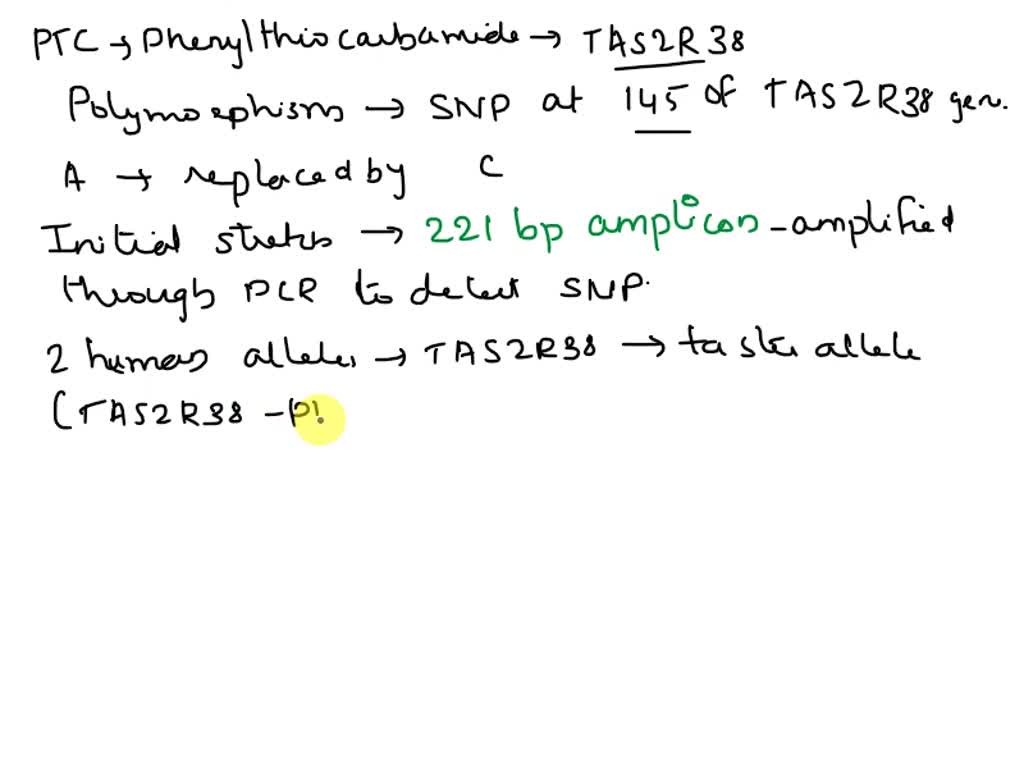 PTC → Phenylthiocarbamide → TAS2R38
Polymorphisms → SNP at 145 of TAS2R38 gen.
A → replaced by C
Initial stretch → 221 bp amplicon - amplified
through PCR to detect SNP.
2 human alleles → TAS2R38 → taster allele
(TAS2R38 - P